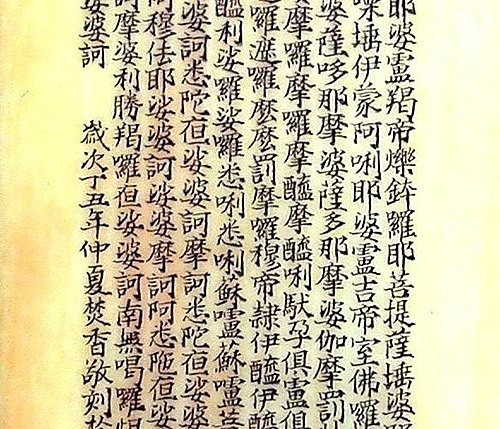 耶婆盧羯帝爍鉢羅耶菩提薩埵婆耶
埵伊蒙阿唎耶婆盧吉帝室佛囉
婆薩哆那摩婆薩多那摩婆伽摩罰
摩囉摩囉摩醯摩醯唎馱孕俱盧俱
囉遮囉麼麼罰摩囉穆帝隸伊醯伊醯
醯利娑囉娑囉悉唎悉唎蘇嚧蘇嚧菩
婆訶悉陀亱娑婆訶摩訶悉陀亱娑婆
阿穆佉耶娑婆訶娑婆摩訶阿悉陁亱娑
訶摩婆利勝羯囉亱娑婆訶南無喝囉
娑婆訶 歲次丁丑年仲夏焚香敬刻於